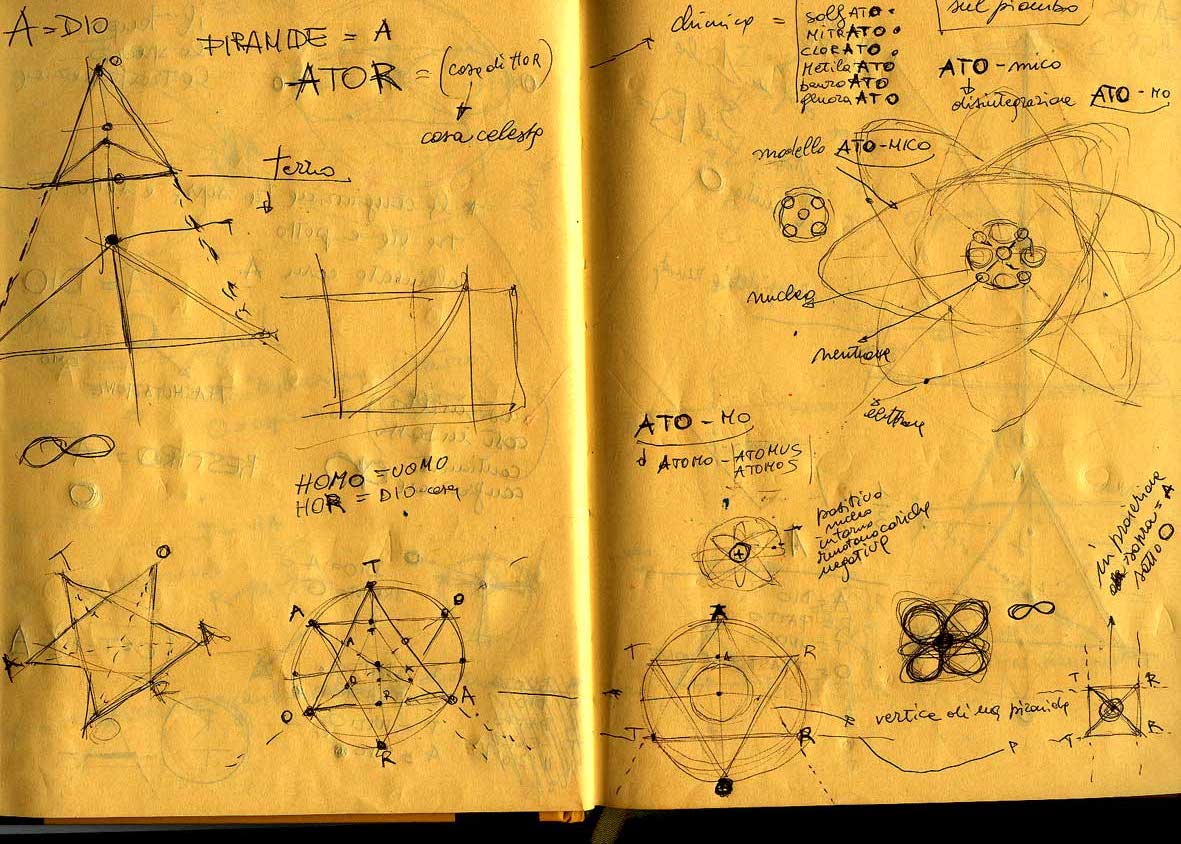 A = DIO
PIRAMIDE = A
ATOR = (casa di HOR)
casa celeste
terra
HOMO = UOMO
HOR = DIO-casa
T
O
A
A
R
T
A
O
O
A
R
chimica =
solfATO
NITRATO
CLORATO
MetilATO
ATO
ATO
sul piombo
ATO-mico
disintegrazione ATO-MO
modello ATO-MICO
nucleo
neutrone
elettrone
ATO-MO
ATOMO - ATOMUS
ATOMOS
positivo
nucleo
interno
ruotano cariche
negative
in proiezione
da sopra = A
sotto O
A
T
R
T
R
vertice di una piramide
T
R
T
R